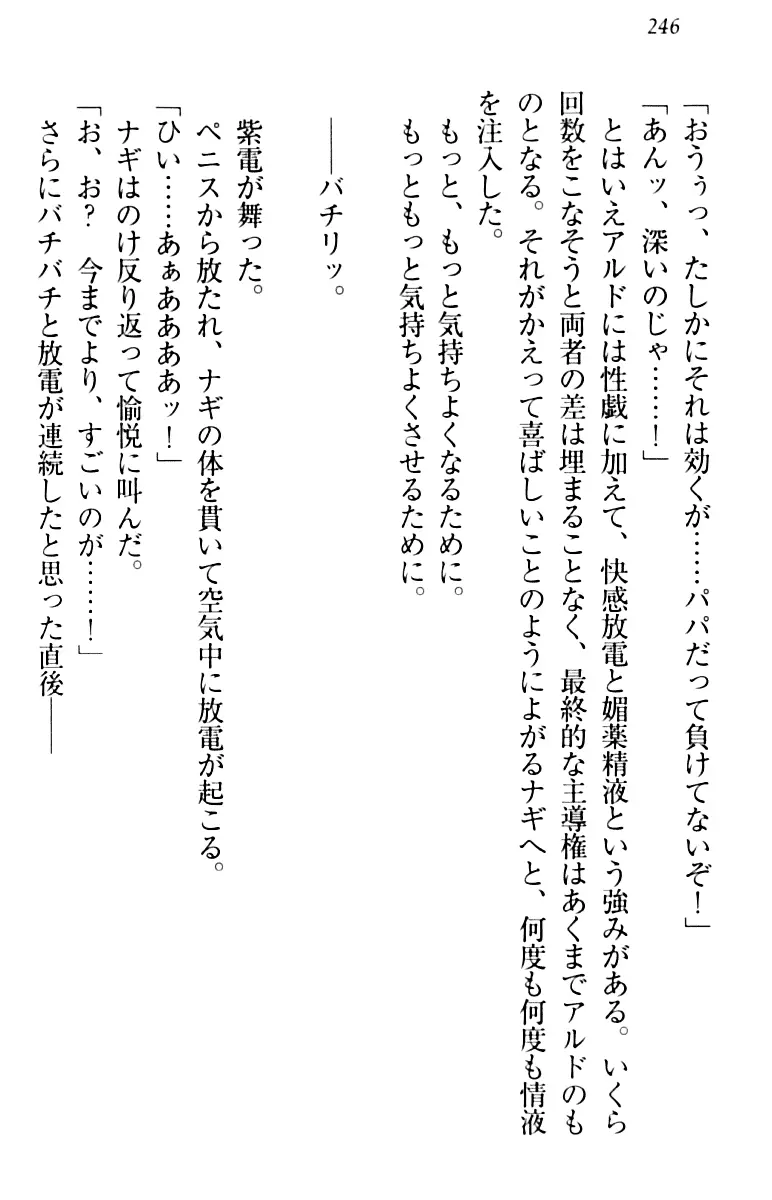 246
「おうぅっ、たしかにそれは効くが……パパだって負けてないぞ！」
「あんッ、深いのじゃ……！」
とはいえアルドには性戯に加えて、快感放電と媚薬精液という強みがある。いくら
回数をこなそうと両者の差は埋まることなく、最終的な主導権はあくまでアルドのも
のとなる。それがかえって喜ばしいことのようによがるナギへと、何度も何度も情液
を注入した。
もっと、もっと気持ちよくなるために。
もっともっと気持ちよくさせるために。
――バチリッ。
紫電が舞った。
ペニスから放たれ、ナギの体を貫いて空気中に放電が起こる。
「ひい……あぁああああッ！」
ナギはのけ反り返って愉悦に叫んだ。
「お、お？　今までより、すごいのが……！」
さらにバチバチと放電が連続したと思った直後――